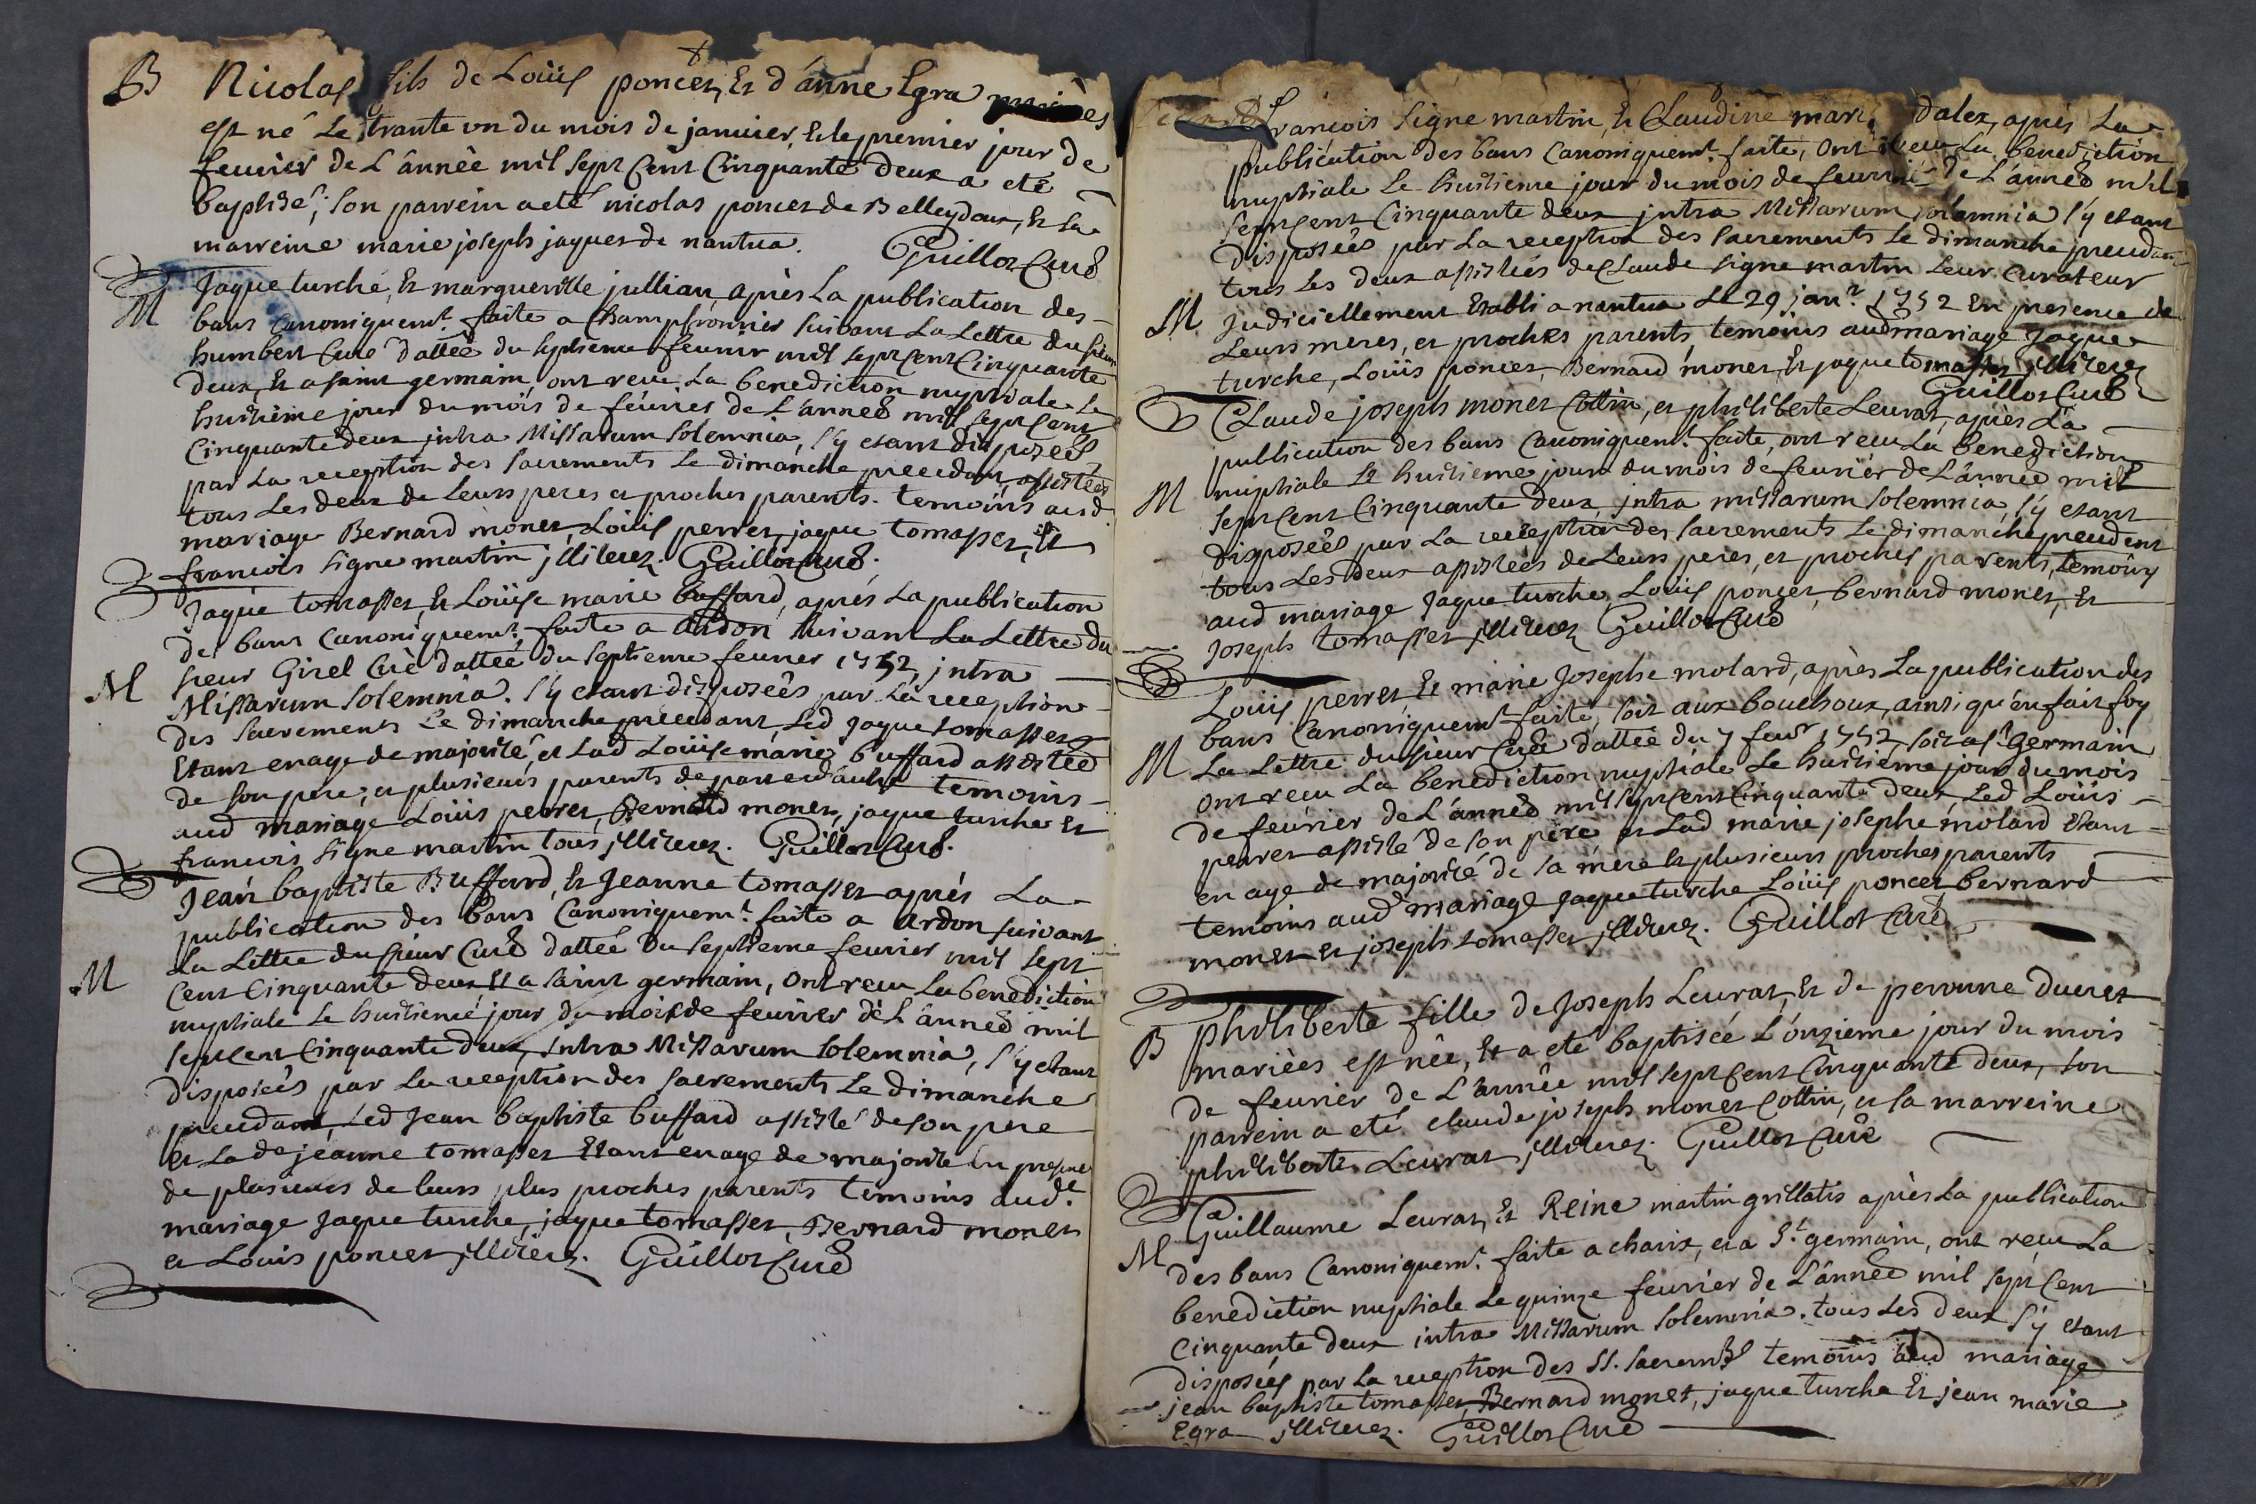 B Nicolas fils de Loüis poncet, Et d'anne Egra mariées
est né Le trante un du mois de januier, Et le premier jour de
feurier de L'année mil sept Cent Cinquante deux a eté
baptisé; son parrein a eté nicolas poncet de Belleydoux, Et sa
marreine marie joseph jaquet de nantua. Guillot Curé
M Jaque turche, Et margueritte jullian, après La publication des
bans Canoniquemt. faite a Champfromier suivant La Lettre du sieur
humbert Curé dattée du septieme feurier mil sept Cent Cinquante
deux, Et a saint germain, ont receu La benediction nuptiale Le
huitieme jour du mois de feurier de L'année mil sept Cent
Cinquante deux intra Missarum solemnia, s'y etant disposées
par La reception des sacrements Le dimanche precedant, assistées
tous Les deux de Leurs peres et proches parents. temoins aud.
mariage Bernard monet, Loüis perret, jaque tomasset, Et
francois signe martin jlliterez. Guillot Curé.
Jaque tomasset, Et Loüise marie buffard, après La publication
des bans Canoniquemt. faite a Ardon suivant La Lettre du
sieur Girel Curé dattée du septieme feurier 1752, intra
M Missarum solemnia. s'y etant disposées par La reception
des sacrements Le dimanche precedant, Led jaque tomasset
Etant en age de majorité, et Lad Loüise marie buffard assistée
de son pere, et plusieurs parents de part et d'autre temoins
aud mariage Loüis perret, Bernard monet, jaque turche Et
francois signe martin tous jlliterez. Guillot Curé.
Jean baptiste Buffard, Et Jeanne tomasset après La
publication des bans Canoniquemt. faite a Ardon suivant
La Lettre du sieur Curé dattée du septieme feurier mil sept
M Cent Cinquante deux Et a saint germain, ont receu La benediction
nuptiale Le huitieme jour du mois de feurier de L'année mil
sept Cent Cinquante deux, intra Missarum solemnia, s'y etant
disposées par La reception des sacrements Le dimanche
precedant, Led Jean baptiste buffard assisté de son pere
et Lade jeanne tomasset Etant en age de majorité En presence
de plusieurs de leurs plus proches parents temoins aude.
mariage jaque turche, jaque tomasset, Bernard monet
et Louis poncet jlliterez. Guillot Curé
francois signe martin, Et Claudine mari dalex, après La
publication des bans Canoniquemt. faite, ont receu La benediction
nuptiale Le huitieme jour du mois de feurier de L'année mil
sept Cent Cinquante deux intra Missarum solamnia s'y etant
disposées par La reception des sacrements Le dimanche precedant
tous Les deux assistés de Claude signe martin Leur Curateur
M Judiciellement Etabli a nantua Le 29 janr. 1752 En presence de
Leurs meres, et proches parents temoins aud mariage Jaque
turche, Loüis poncet, Bernard monet, Et jaque tomasset jlliterez
Guillot Curé
Claude joseph monet Cottin, et philiberte Leurat, après La
publication des bans Canoniquemt. faite, ont receu La benediction
M nuptiale Le huitieme jour du mois de feurier de L'année mil
sept Cent Cinquante deux, intra missarum solemnia, s'y etant
disposées par La reception des sacrements Le dimanche precedent
tous Les deux assistées de Leurs peres, et proches parents, temoins
aud mariage Jaque turche, Loüis poncet, bernard monet, Et
Joseph tomasset jlliterez Guillot Curé
Loüis perret, Et marie Josephe molard, après La publication des
bans Canoniquemt faite, soit aux bouchoux, ainsi qu'en fait foy
M La Lettre du sieur Curé dattée du 7 feur 1752, soit a st germain
ont receu La benediction nuptiale Le huitieme jour du mois
de feurier de L'année mil sept Cent Cinquante deux, Led Loüis
perret assisté de son pere et Lad marie josephe molard Etant
en age de majorité de sa mere Et plusieurs proches parents
temoins aud mariage jaque turche Loüis poncet bernard
monet Et joseph tomasset jlliterez. Guillot Curé
B philiberte fille de Joseph Leurat, Et de peronne ducret
mariées est née, Et a eté baptisée L'onzieme jour du mois
de feurier de L'année mil sept Cent Cinquante deux, son
parrein a eté claude joseph monet Cottin, et sa marreine
philiberte Leurat jlliterez. Guillot Curé
Guillaume Leurat, Et Reine martin grillatis après La publication
M des bans Canoniquemt. faite a charix, et a St. germain, ont receu La
benediction nuptiale Le quinze feurier de L'année mil sept Cent
Cinquante deux intra Missarum solemnia. tous Les deux s'y etant
disposées par La reception des SS. sacremts temoins aud mariage
jean baptiste tomasset, Bernard monet, jaque turche Et jean marie
Egra jlliterez. Guillot Curé